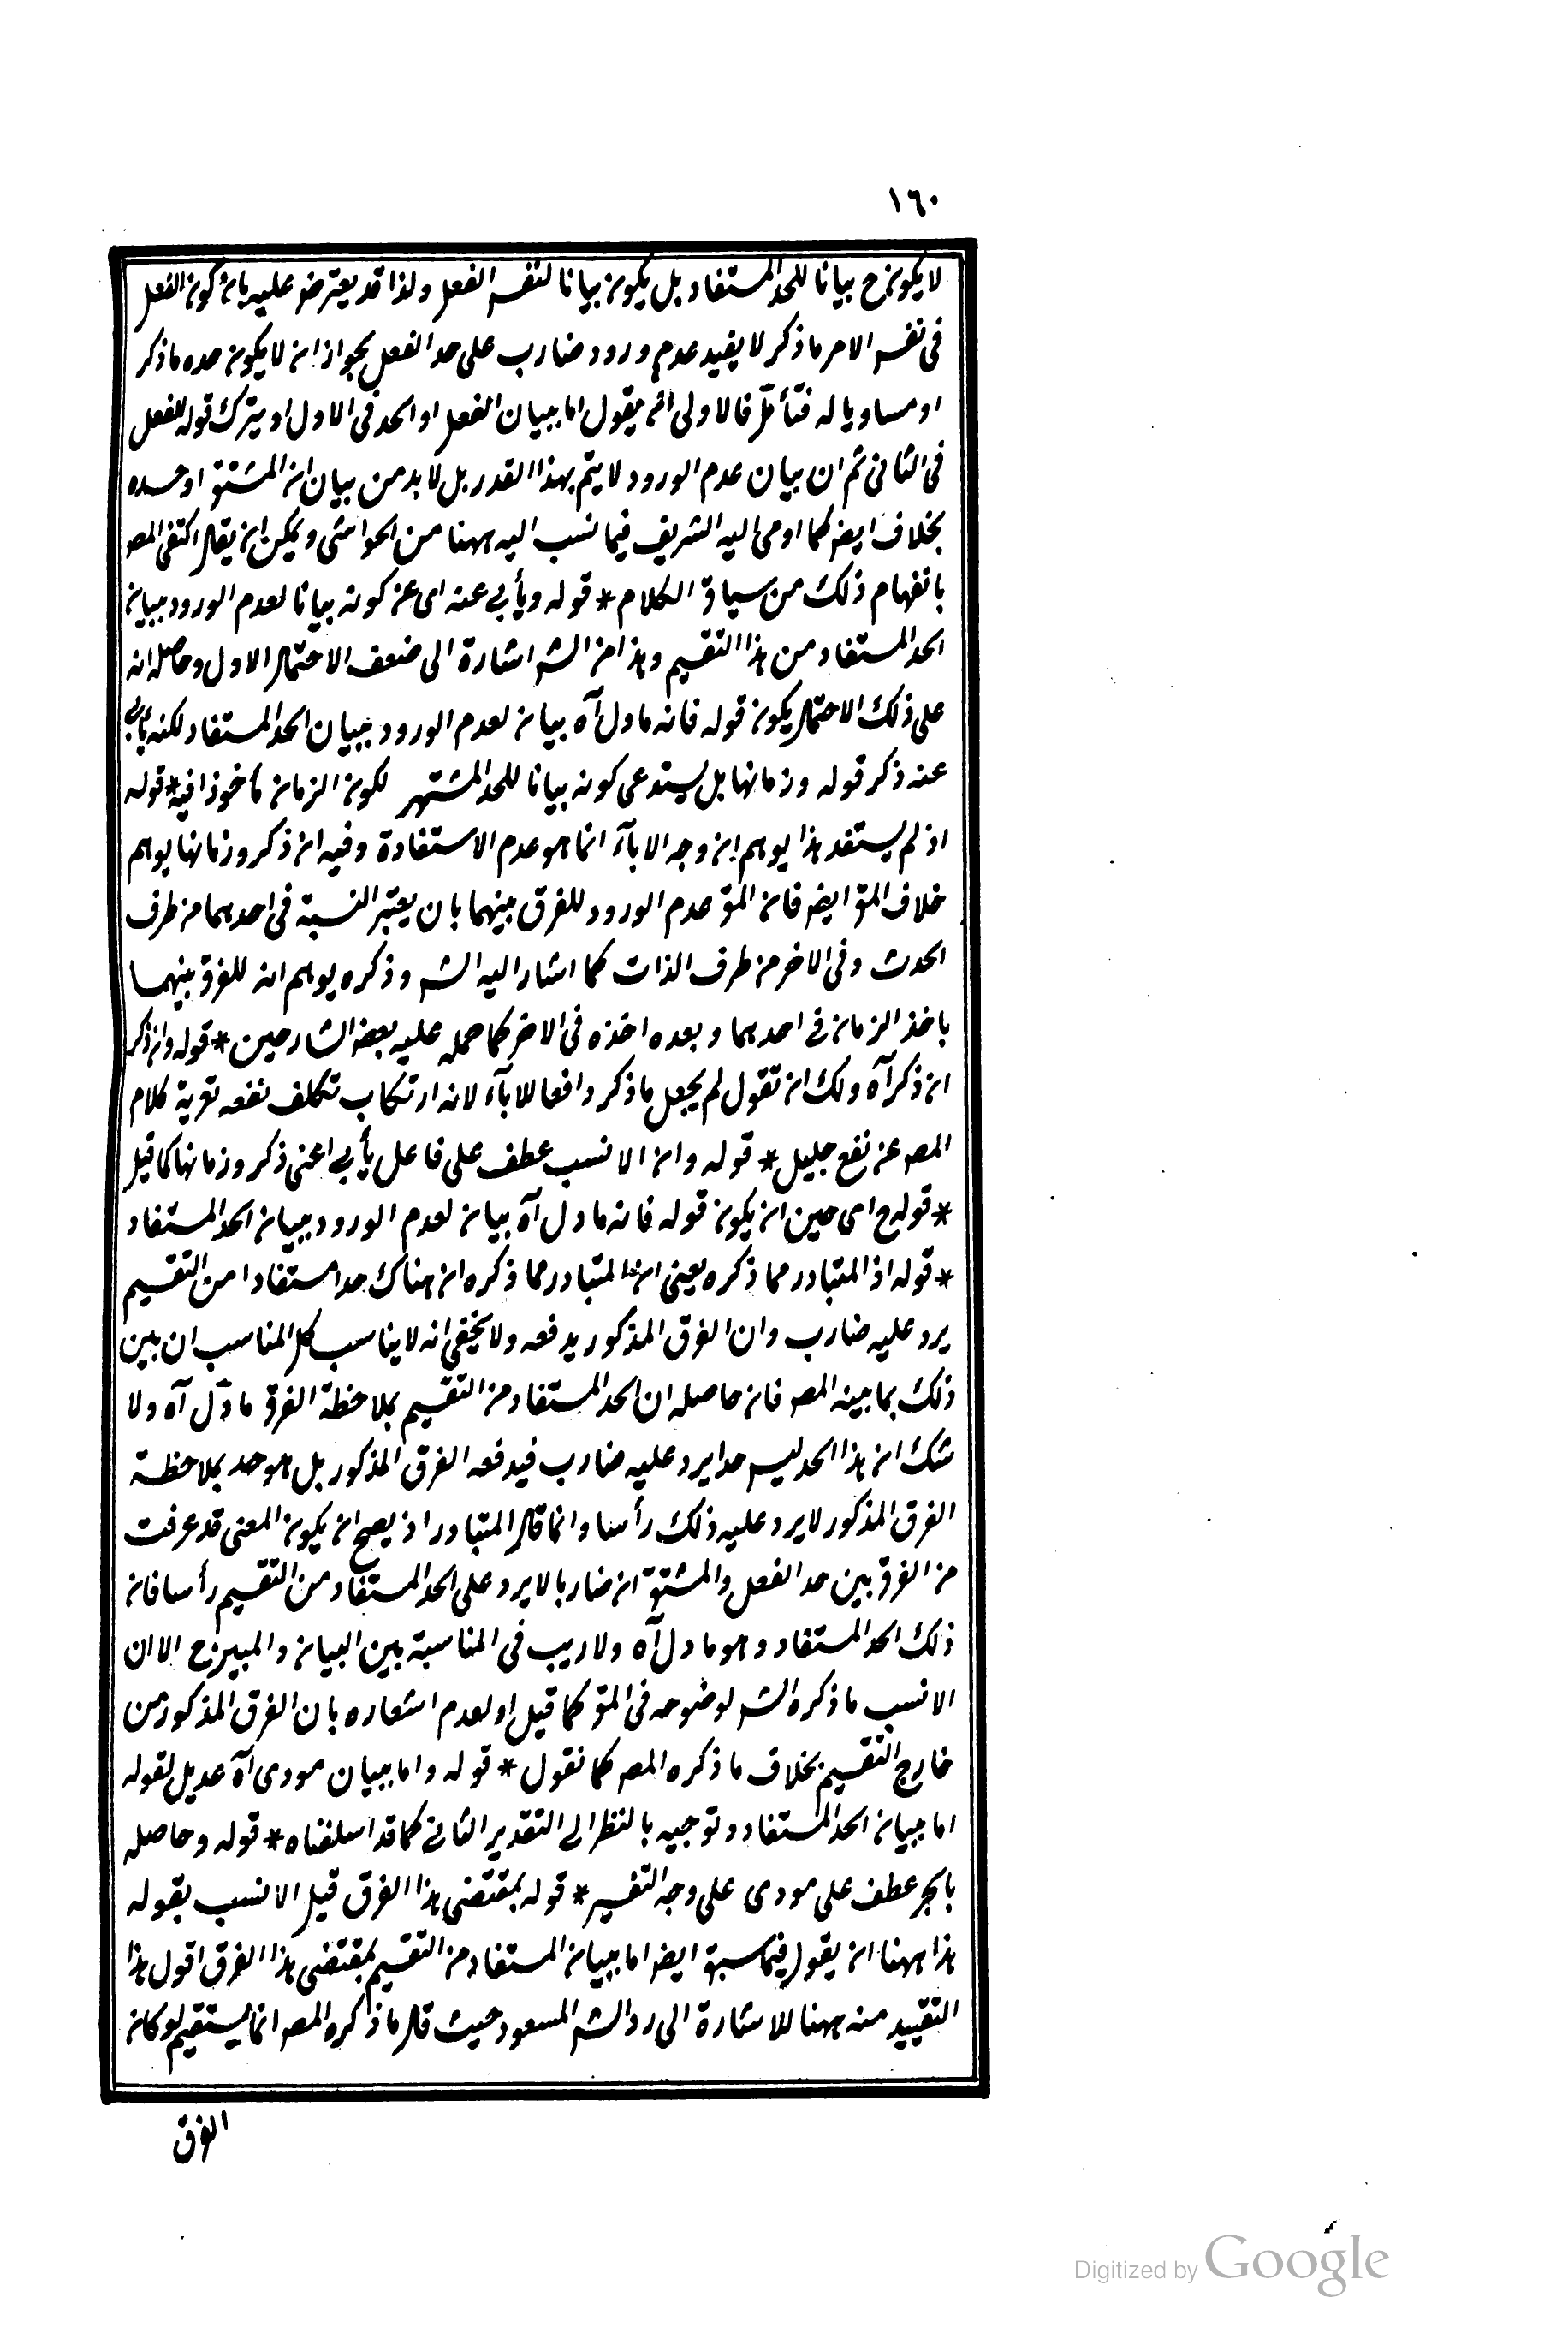 ١٦٠
لا يكون ح بيانا للحد المستفاد بل يكون بيانا لنفس الفعل ولذا قد يعترض عليه بان كون الفعل
فى نفس الامر ما ذكر لا يفيد عدم ورود ضارب على حد الفعل بجواز ان لا يكون حده ما ذكر
او مساويا له فتأمل فالاولى ان يقول اما ببيان الفعل او الحد فى الاول او يترك قوله للفعل
فى الثانى ثم ان بيان عدم الورود لا يتم بهذا القدر بل لا بد من بيان ان المشتق او حده
بخلافه ايضا كما اومى اليه الشريف فيما نسب اليه ههنا من الحواشى ويمكن ان يقال اكتفى المص
بانفهام ذلك من سياق الكلام * قوله ويأبى عنه اى عن كونه بيانا لعدم الورود ببيان
الحد المستفاد من هذا التقسيم وهذا من الش اشارة الى ضعف الاحتمال الاول وحاصله انه
على ذلك الاحتمال يكون قوله فانه ما دل آه بيان لعدم الورود ببيان الحد المستفاد لكنه يأبى
عنه ذكر قوله وزمانها بل يستدعى كونه بيانا للحد المشتهر لكون الزمان مأخوذا فيه * قوله
اذ لم يستفد هذا يوهم ان وجه الاباء انما هو عدم الاستفادة وفيه ان ذكر وزمانها يوهم
خلاف المق ايضا فان المق عدم الورود للفرق بينهما بان يعتبر النسبة فى احدهما من طرف
الحدث وفى الاخر من طرف الذات كما اشار اليه الش وذكره يوهم انه للفرق بينهما
باخذ الزمان فى احدهما وبعده اخذه فى الاخر كما حمله عليه بعض الشارحين * قوله وان ذكر
ان ذكر آه ولك ان تقول لم يجعل ما ذكر دافعا للاباء لانه ارتكاب تكلف نفعه تعرية كلام
المص عن نفع جليل * قوله وان الانسب عطف على فاعل يأبى اعنى ذكر وزمانها كما قيل
* قوله ح اى حين ان يكون قوله فانه ما دل آه بيان لعدم الورود ببيان الحد المستفاد
* قوله اذ المتبادر مما ذكره يعنى ان المتبادر مما ذكره ان هناك حدا مستفادا من التقسيم
يرد عليه ضارب وان الفرق المذكور يدفعه ولا يخفى انه لا يناسب كل المناسب ان يبين
ذلك بما بينه المص فان حاصله ان الحد المستفاد من التقسيم بملاحظة الفرق ما دل آه ولا
شك ان هذا الحد ليس حدا يرد عليه ضارب فيدفعه الفرق المذكور بل هو حد بملاحظة
الفرق المذكور لا يرد عليه ذلك رأسا وانما قال المتبادر اذ يصح ان يكون المعنى قد عرفت
من الفرق بين حد الفعل والمشتق ان ضاربا لا يرد على الحد المستفاد من التقسيم رأسا فان
ذلك الحد المستفاد وهو ما دل آه ولا ريب فى المناسبة بين البيان والمبين ح الا ان
الانسب ما ذكره الش لوضوحه فى المق كما قيل او لعدم اشعاره بان الفرق المذكور من
خارج التقسيم بخلاف ما ذكره المص كما نقول * قوله واما ببيان مودى آه عديل لقوله
اما ببيان الحد المستفاد وتوجيه بالنظر الى التقدير الثانى كما قد اسلفناه * قوله وحاصله
بالجر عطف على مودى على وجه التفسير * قوله بمقتضى هذا الفرق قيل الانسب بقوله
هذا ههنا ان يقول فيما سبق ايضا اما ببيان المستفاد من التقسيم بمقتضى هذا الفرق اقول هذا
التقييد منه ههنا للاشارة الى رد الش المسعود حيث قال ما ذكره المص انما يستقيم لو كان
الفرق
Digitized by Google